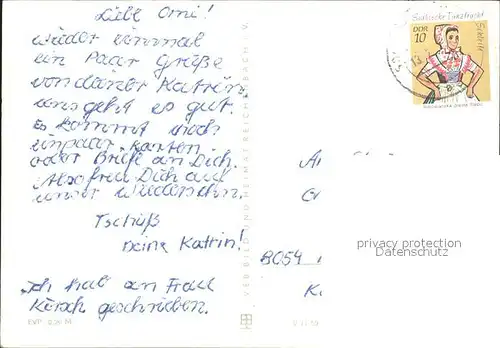 Liebe Omi!
wieder einmal
ein Paar Grüße
von deiner Katrin,
uns geht es gut.
Es kommt noch
ein paar Karten
oder Briefe an Dich.
Also freu Dich auf
unser Wiedersehn.
Tschüß
deine Katrin!
Ich hab an Frau
geschrieben.
EVP 0,20 M
VEB BILD UND HEIMAT REICHENBACH i. V.
Sorbische Tanztracht
DDR
10
8054
privacy protection
Datenschutz